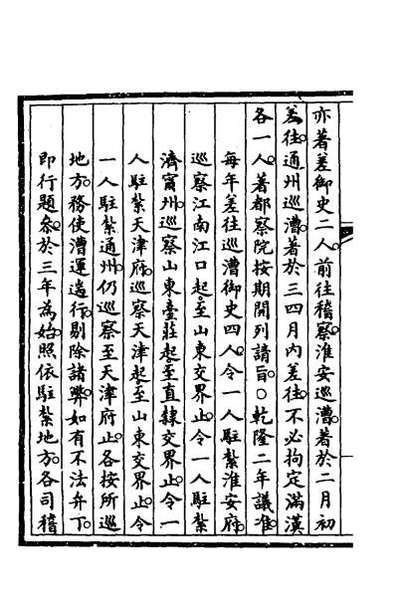 亦著差御史二人。前往稽察。淮安巡漕。著於二月初
差往。通州巡漕。著於三四月內差往。不必拘定滿漢
各一人。著都察院按期開列請旨。○乾隆二年議准。
每年差往巡漕御史四人。令一人駐紮淮安府。
巡察江南江口起。至山東交界止。令一人駐紮
濟寗州。巡察山東臺莊起。至直隸交界止。令一
人駐紮天津府。巡察天津起。至山東交界止。令
一人駐紮通州。仍巡察至天津府止。各按所巡
地方。務使漕運遄行。剔除諸弊。如有不法弁丁。
即行題參。於三年為始。照依駐紮地方。各司稽